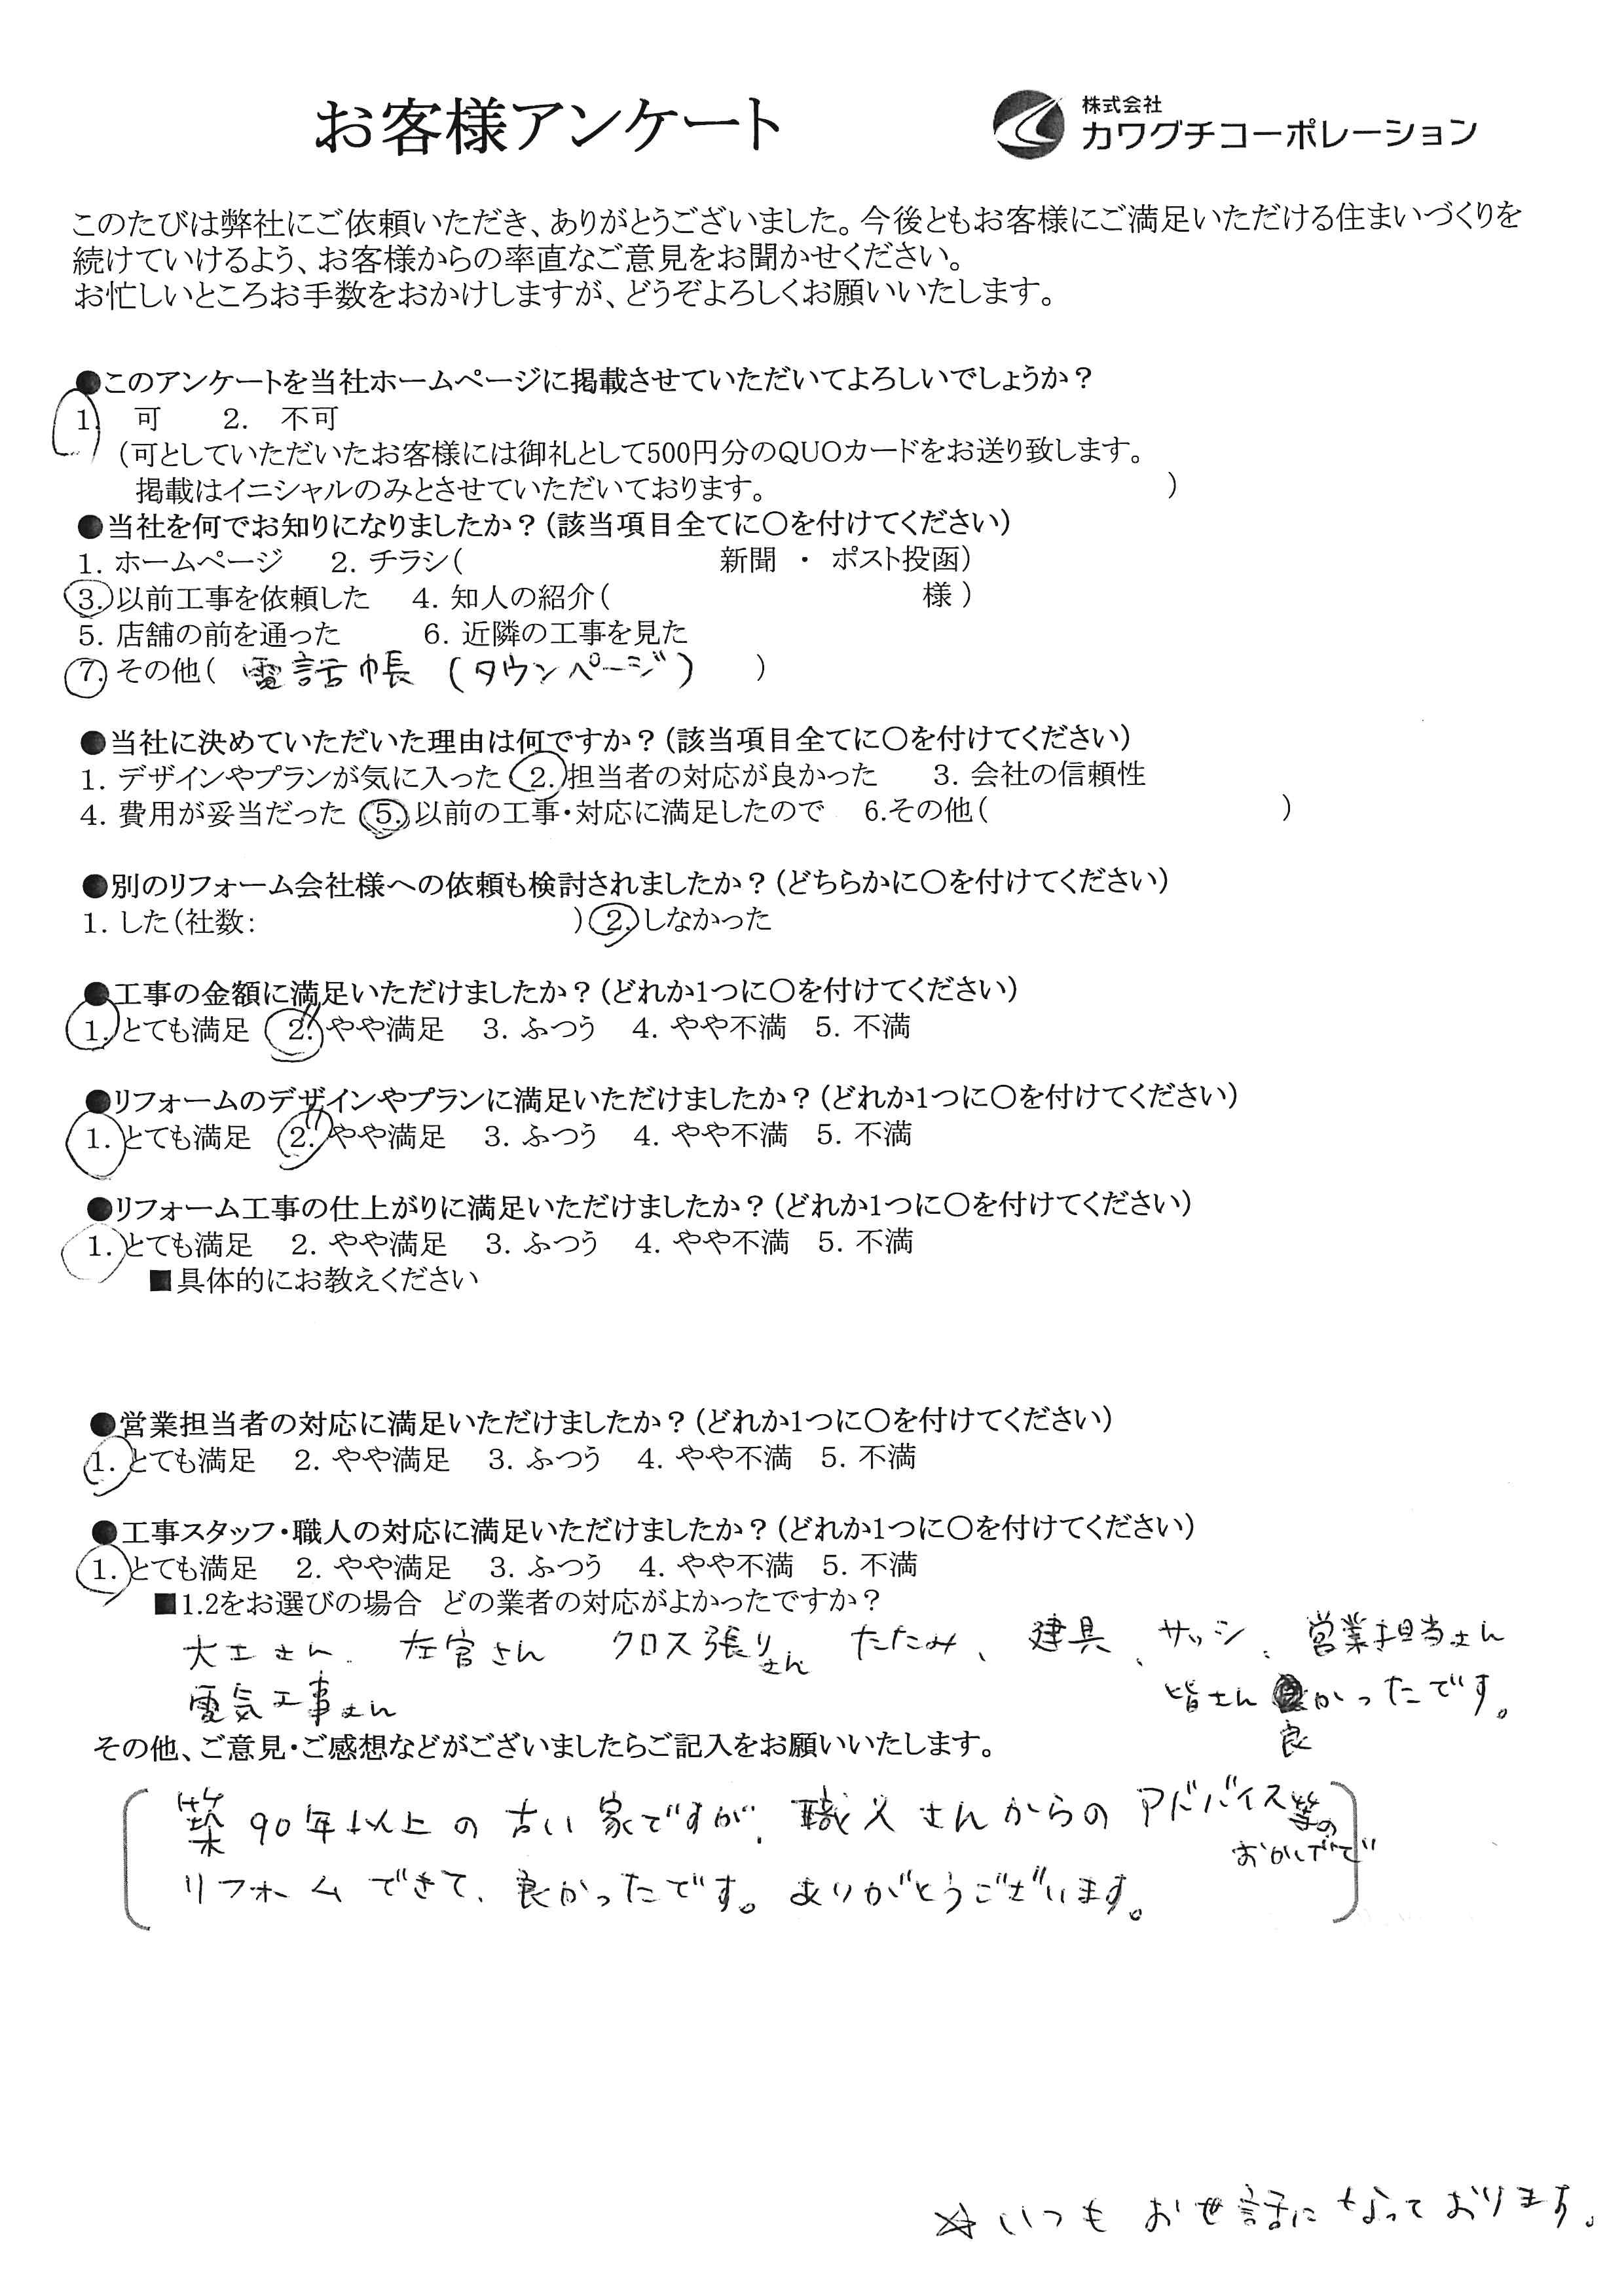 お客様アンケート
株式会社
カワグチコーポレーション
このたびは弊社にご依頼いただき、ありがとうございました。今後ともお客様にご満足いただける住まいづくりを
続けていけるよう、お客様からの率直なご意見をお聞かせください。
お忙しいところお手数をおかけしますが、どうぞよろしくお願いいたします。
●このアンケートを当社ホームページに掲載させていただいてよろしいでしょうか？
1. 可 2. 不可
（可としていただいたお客様には御礼として500円分のQUOカードをお送り致します。
掲載はイニシャルのみとさせていただいております。 ）
●当社を何でお知りになりましたか？（該当項目全てに〇を付けてください）
1. ホームページ 2. チラシ（ 新聞 ・ ポスト投函）
3. 以前工事を依頼した 4. 知人の紹介（ 様 ）
5. 店舗の前を通った 6. 近隣の工事を見た
7. その他（ 電話帳 (タウンページ) ）
●当社に決めていただいた理由は何ですか？（該当項目全てに〇を付けてください）
1. デザインやプランが気に入った 2. 担当者の対応が良かった 3. 会社の信頼性
4. 費用が妥当だった 5. 以前の工事・対応に満足したので 6.その他（ ）
●別のリフォーム会社様への依頼も検討されましたか？（どちらかに〇を付けてください）
1. した（社数： ） 2. しなかった
●工事の金額に満足いただけましたか？（どれか1つに〇を付けてください）
1. とても満足 2. やや満足 3. ふつう 4. やや不満 5. 不満
●リフォームのデザインやプランに満足いただけましたか？（どれか1つに〇を付けてください）
1. とても満足 2. やや満足 3. ふつう 4. やや不満 5. 不満
●リフォーム工事の仕上がりに満足いただけましたか？（どれか1つに〇を付けてください）
1. とても満足 2. やや満足 3. ふつう 4. やや不満 5. 不満
■具体的にお教えください
●営業担当者の対応に満足いただけましたか？（どれか1つに〇を付けてください）
1. とても満足 2. やや満足 3. ふつう 4. やや不満 5. 不満
●工事スタッフ・職人の対応に満足いただけましたか？（どれか1つに〇を付けてください）
1. とても満足 2. やや満足 3. ふつう 4. やや不満 5. 不満
■1.2をお選びの場合 どの業者の対応がよかったですか？
大工さん、 左官さん クロス張りさん たたみ、 建具、 サッシ、 営業担当さん
電気工事さん 皆さん良かったです。
その他、ご意見・ご感想などがございましたらご記入をお願いいたします。
築90年以上の古い家ですが、職人さんからのアドバイス等の
おかげで
リフォームできて、良かったです。ありがとうございます。
☆いつもお世話になっております。